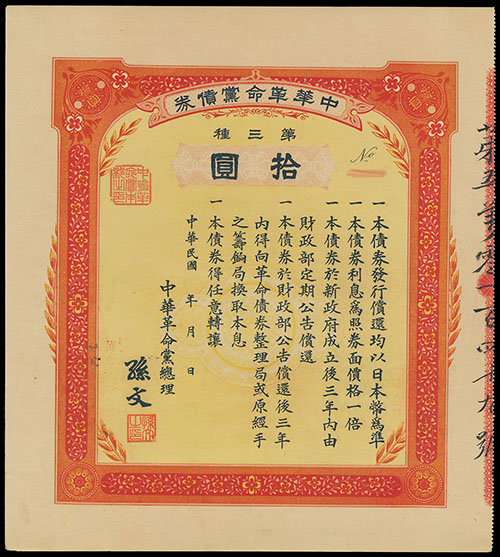 中華革命黨債券
第三種
拾圓
No
一本債券發行償還均以日本幣爲準
一本債券利息爲照券面價格一倍
一本債券於新政府成立後三年內由
財政部定期公告償還
一本債券於財政部公告償還後三年
內得向革命債券整理局或原經手
之籌餉局換取本息
一本債券得任意轉讓
中華民國 年 月 日
中華革命黨總理
孫文